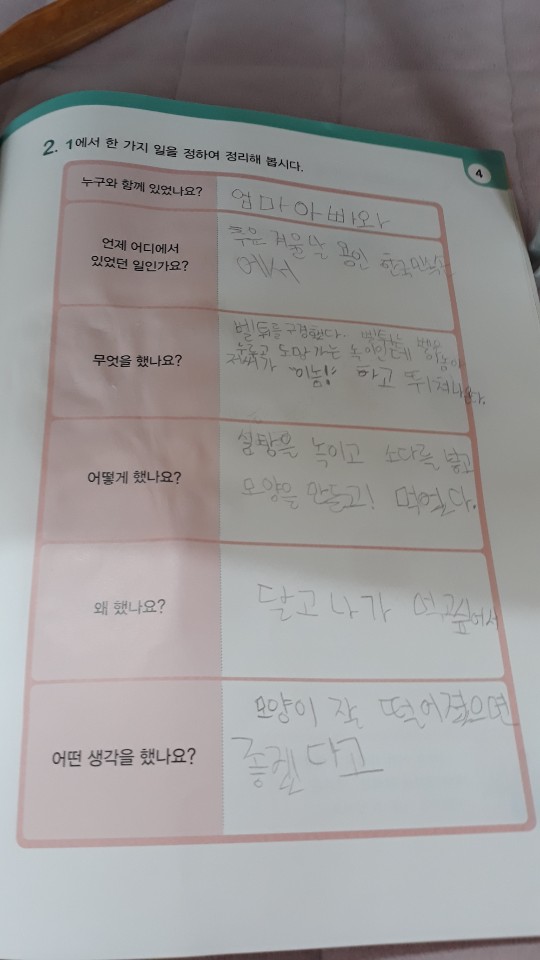 2. 1에서 한 가지 일을 정하여 정리해 봅시다.
4
누구와 함께 있었나요?
엄마아빠와
언제 어디에서
있었던 일인가요?
추운 겨울날 용인 한국민속촌
에서
무엇을 했나요?
구경했다.
누르고 도망가는 놀이인데
저씨가 "이놈!" 하고 뛰쳐나온다.
어떻게 했나요?
설탕을 녹이고 소다를 넣고
모양을 만들고! 먹었다.
왜 했나요?
달고나가 먹고싶어서
어떤 생각을 했나요?
모양이 잘 떨어졌으면
좋겠다고